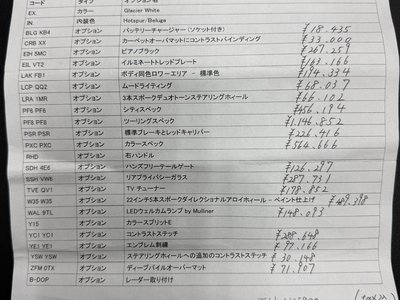 コード タイプ
EX. カラー Glacier White
IN 内装色 Hotspur/Beluga
BLG KB4 オプション バッテリーチャージャー (ソケット付き) ¥18.435
CRB XX オプション カーペットオーバーマットにコントラストバインディング ¥33.000
EIH 5MC オプション ピアノブラック ¥267.259
EIL VT2 オプション イルミネートトレッドプレート ¥163.166
LAK FB1 オプション ボディ同色ロワーエリア - 標準色 ¥194.334
LCP QQ2 オプション ムードライティング ¥68.037
LRA 1MR オプション 3本スポークデュオトーンステアリングホィール ¥66.102
PF6 PF6 オプション シティスペック ¥456.194
PF8 PF8 オプション ツーリングスペック ¥1.146.852
PSR PSR オプション 標準ブレーキとレッドキャリパー ¥226.416
PXC PXC オプション カラースペック ¥564.666
RHD オプション 右ハンドル
SDH 4E6 オプション ハンズフリーテールゲート ¥126.297
SSH VW6 オプション リアプライバシーガラス ¥287.731
TVE QV1 オプション TV チューナー ¥178.852
W35 W35 オプション 22インチ5本スポークダイレクショナルアロイホィール - ペイント仕上げ ¥489.398
WAL 9TL オプション LEDウェルカムランプ by Mulliner ¥148.093
Y15 オプション カラースプリットE
YC1 YC1 オプション コントラストステッチ ¥288.648
YE1 YE1 オプション エンブレム刺繍 ¥97.166
YSW YSW オプション ステアリングホィールへの追加のコントラストステッチ ¥30.648
ZFM 0TX オプション ディープパイルオーバーマット ¥71.907
B-OOP オプション レーダー取り付け